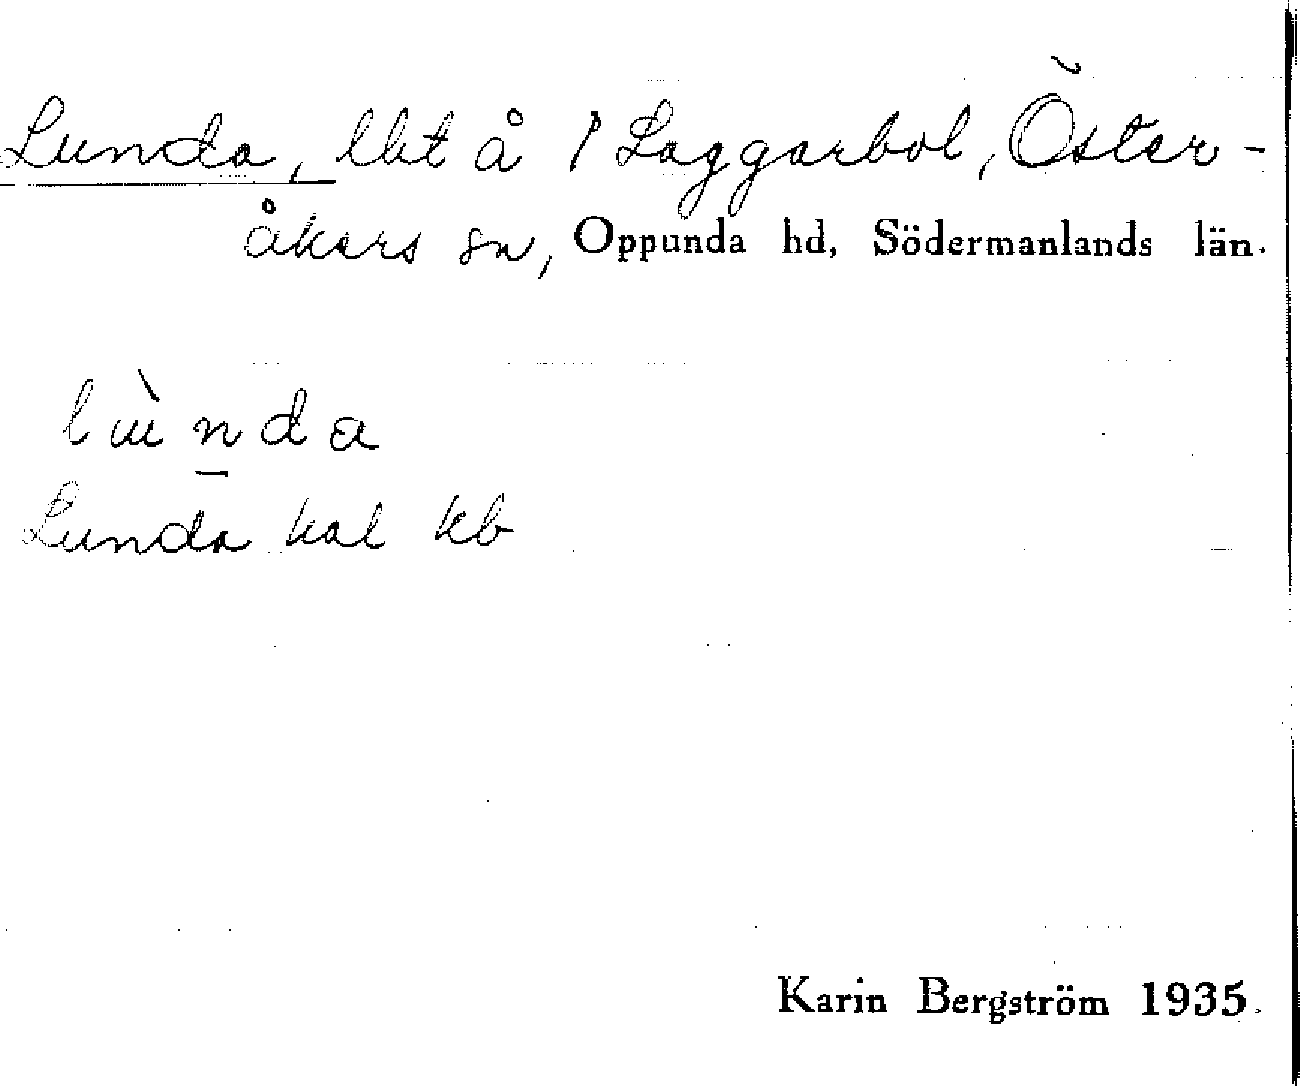 Lunda, lht å 1 Laggarbol, Öster-
åkers sn, Oppunda hd, Södermanlands län.
lùnda
Lunda kal kb
Karin Bergström 1935.